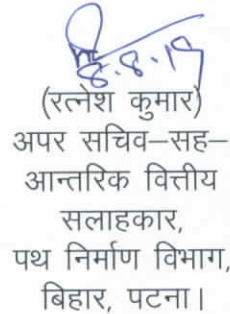 8.8.19
(रत्नेश कुमार)
अपर सचिव–सह–
आन्तरिक वित्तीय
सलाहकार,
पथ निर्माण विभाग,
बिहार, पटना।